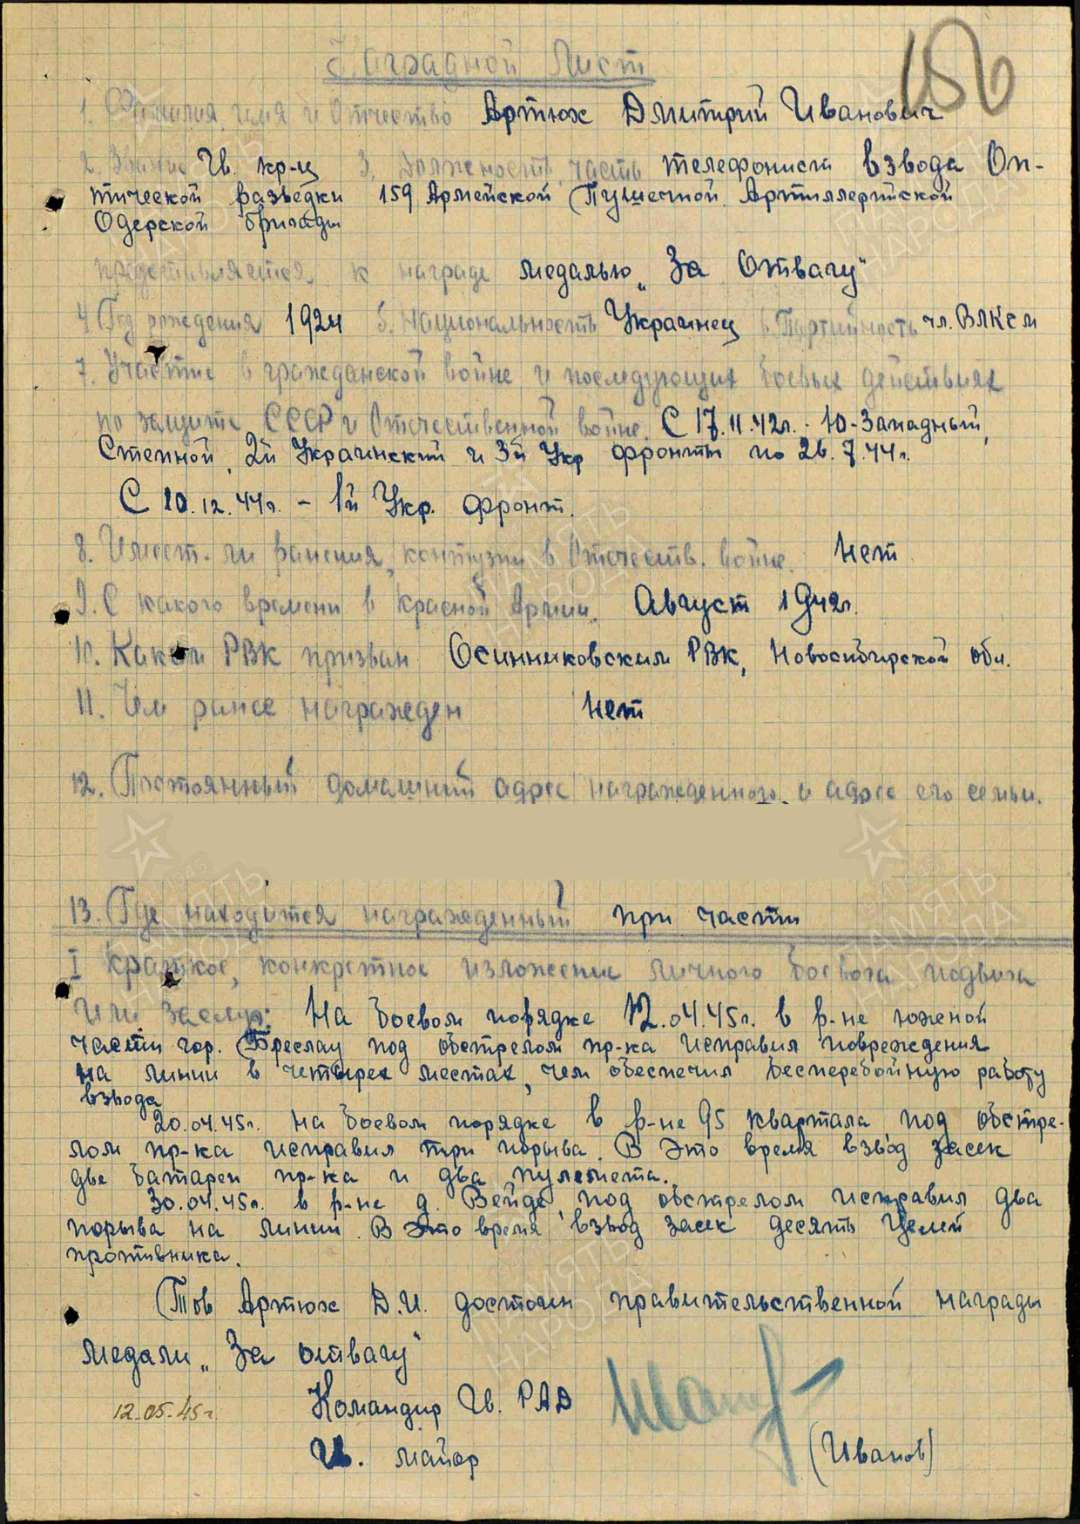 Наградной Лист
156
1. Фамилия, имя и Отчество Артюх Дмитрий Иванович
2. Звание Гв. кр-ц 3. Должность, часть телефонист взвода Оп-
тической разведки 159 Армейской Пушечной Артиллерийской
Одерской бригады
представляется к награде медалью „За Отвагу"
4. Год рождения 1924 5. Национальность Украинец 6. Партийность чл. ВЛКСМ
7. Участие в гражданской войне и последующих боевых действиях
по защите СССР и Отечественной войне. С 17.11.42г. - Ю-Западный,
Степной, 2й Украинский и 3й Укр фронты по 26.7.44г.
С 10.12.44г. - 1й Укр. фронт.
8. Имеет ли ранения, контузии в Отечеств. войне. Нет
9. С какого времени в Красной Армии. Август 1942г.
10. Каким РВК призван Осинниковским РВК, Новосибирской обл.
11. Чем ранее награжден Нет
12. Постоянный домашний адрес награжденного и адрес его семьи.
13. Где находится награжденный при части
I Краткое, конкретное изложение личного боевого подвига
или заслуг: На боевом порядке 12.04.45г. в р-не южной
части гор. Бреслау под обстрелом пр-ка исправил повреждения
на линии в четырех местах, чем обеспечил бесперебойную работу
взвода
20.04.45г. на боевом порядке в р-не 95 квартала под обстре-
лом пр-ка исправил три порыва. В это время взвод засек
две батареи пр-ка и два пулемета.
30.04.45г. в р-не д. Вейде под обстрелом исправил два
порыва на линии. В это время взвод засек десять целей
противника.
Тов Артюх Д.И. достоин правительственной награды
медали „За отвагу"
12.05.45г. Командир Гв. РАД
Гв. майор (Иванов)
ПАМЯТЬ НАРОДА